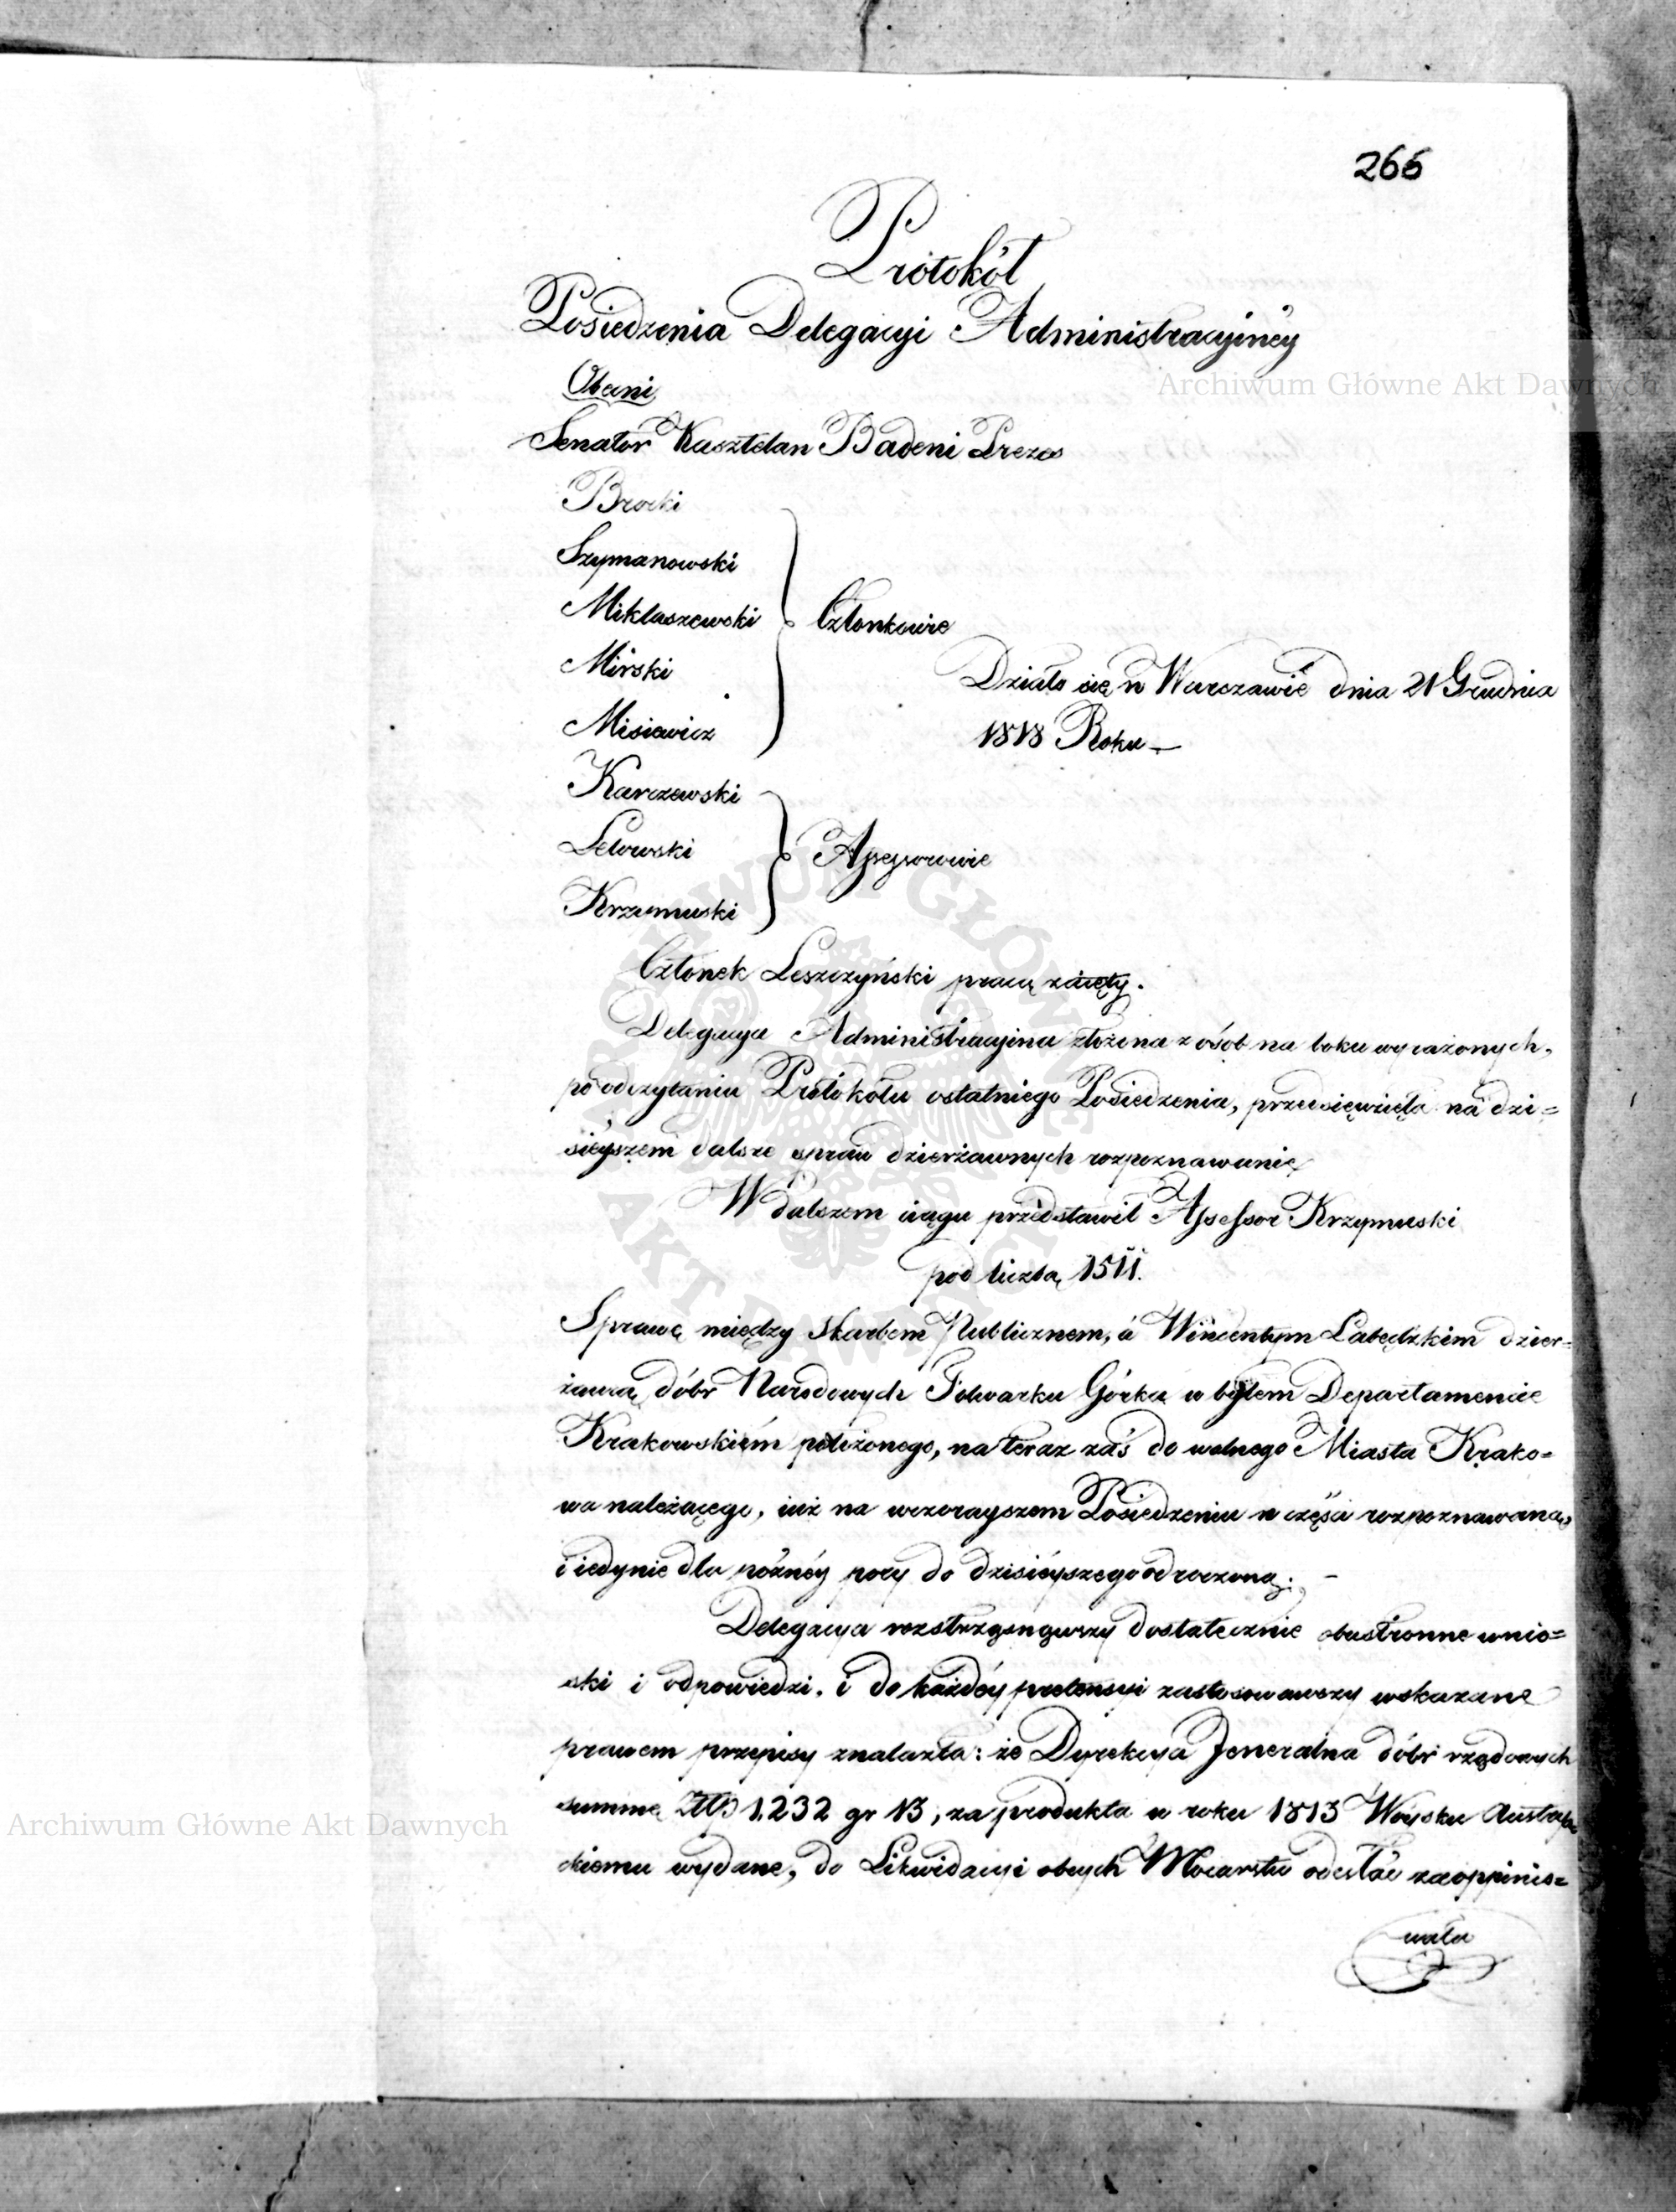 266
Protokół
Posiedzenia Delegacyi Administracyinéy
Obecni
Senator Kasztelan Badeni Prezes
Brocki
Szymanowski
Miklaszewski
Członkowie
Mirski
Działo się w Warszawie dnia 21 Grudnia
Misiewicz
1818 Roku
Karczewski
Lelowski
Assessorowie
Krzymuski
Członek Leszczyński pracą zaięty.
Delegacya Administracyina złożona z osób na boku wyrażonych,
po odczytaniu Protokółu ostatniego Posiedzenia, przedsięwzięła na dzi=
sieyszém dalsze spraw dzierżawnych rozpoznawanie
W dalszem ciągu przedstawił Assessor Krzymuski
pod liczbą 1511.
Sprawę między Skarbem Publicznem, á Wincentym Łabędzkim dzier=
żawcą dóbr Narodowych Folwarku Górka w byłem Departamencie
Krakowskiém położonego, na teraz zaś do wolnego Miasta Krako=
wa należącego, iuż na wczorayszem Posiedzeniu w części rozpoznawaną,
i iedynie dla późnéy pory do dzisiéyszego odroczoną.
Delegacya rozstrzygnąwszy dostatecznie obustronne wnio=
ski i odpowiedzi, i do każdéy pretensyi zastosowawszy wskazane
prawem przepisy znalazła: że Dyrekcya Jeneralna dóbr rządowych
summę Złp 1,232 gr 13, za produkta w roku 1813 Woysku Austrya
ckiemu wydane, do Likwidacyi obcych Mocarstw odesłać zaoppinio=
wała
Archiwum Główne Akt Dawnych
Archiwum Główne Akt Dawnych
ARCHIWUM GŁÓWNE AKT DAWNYCH